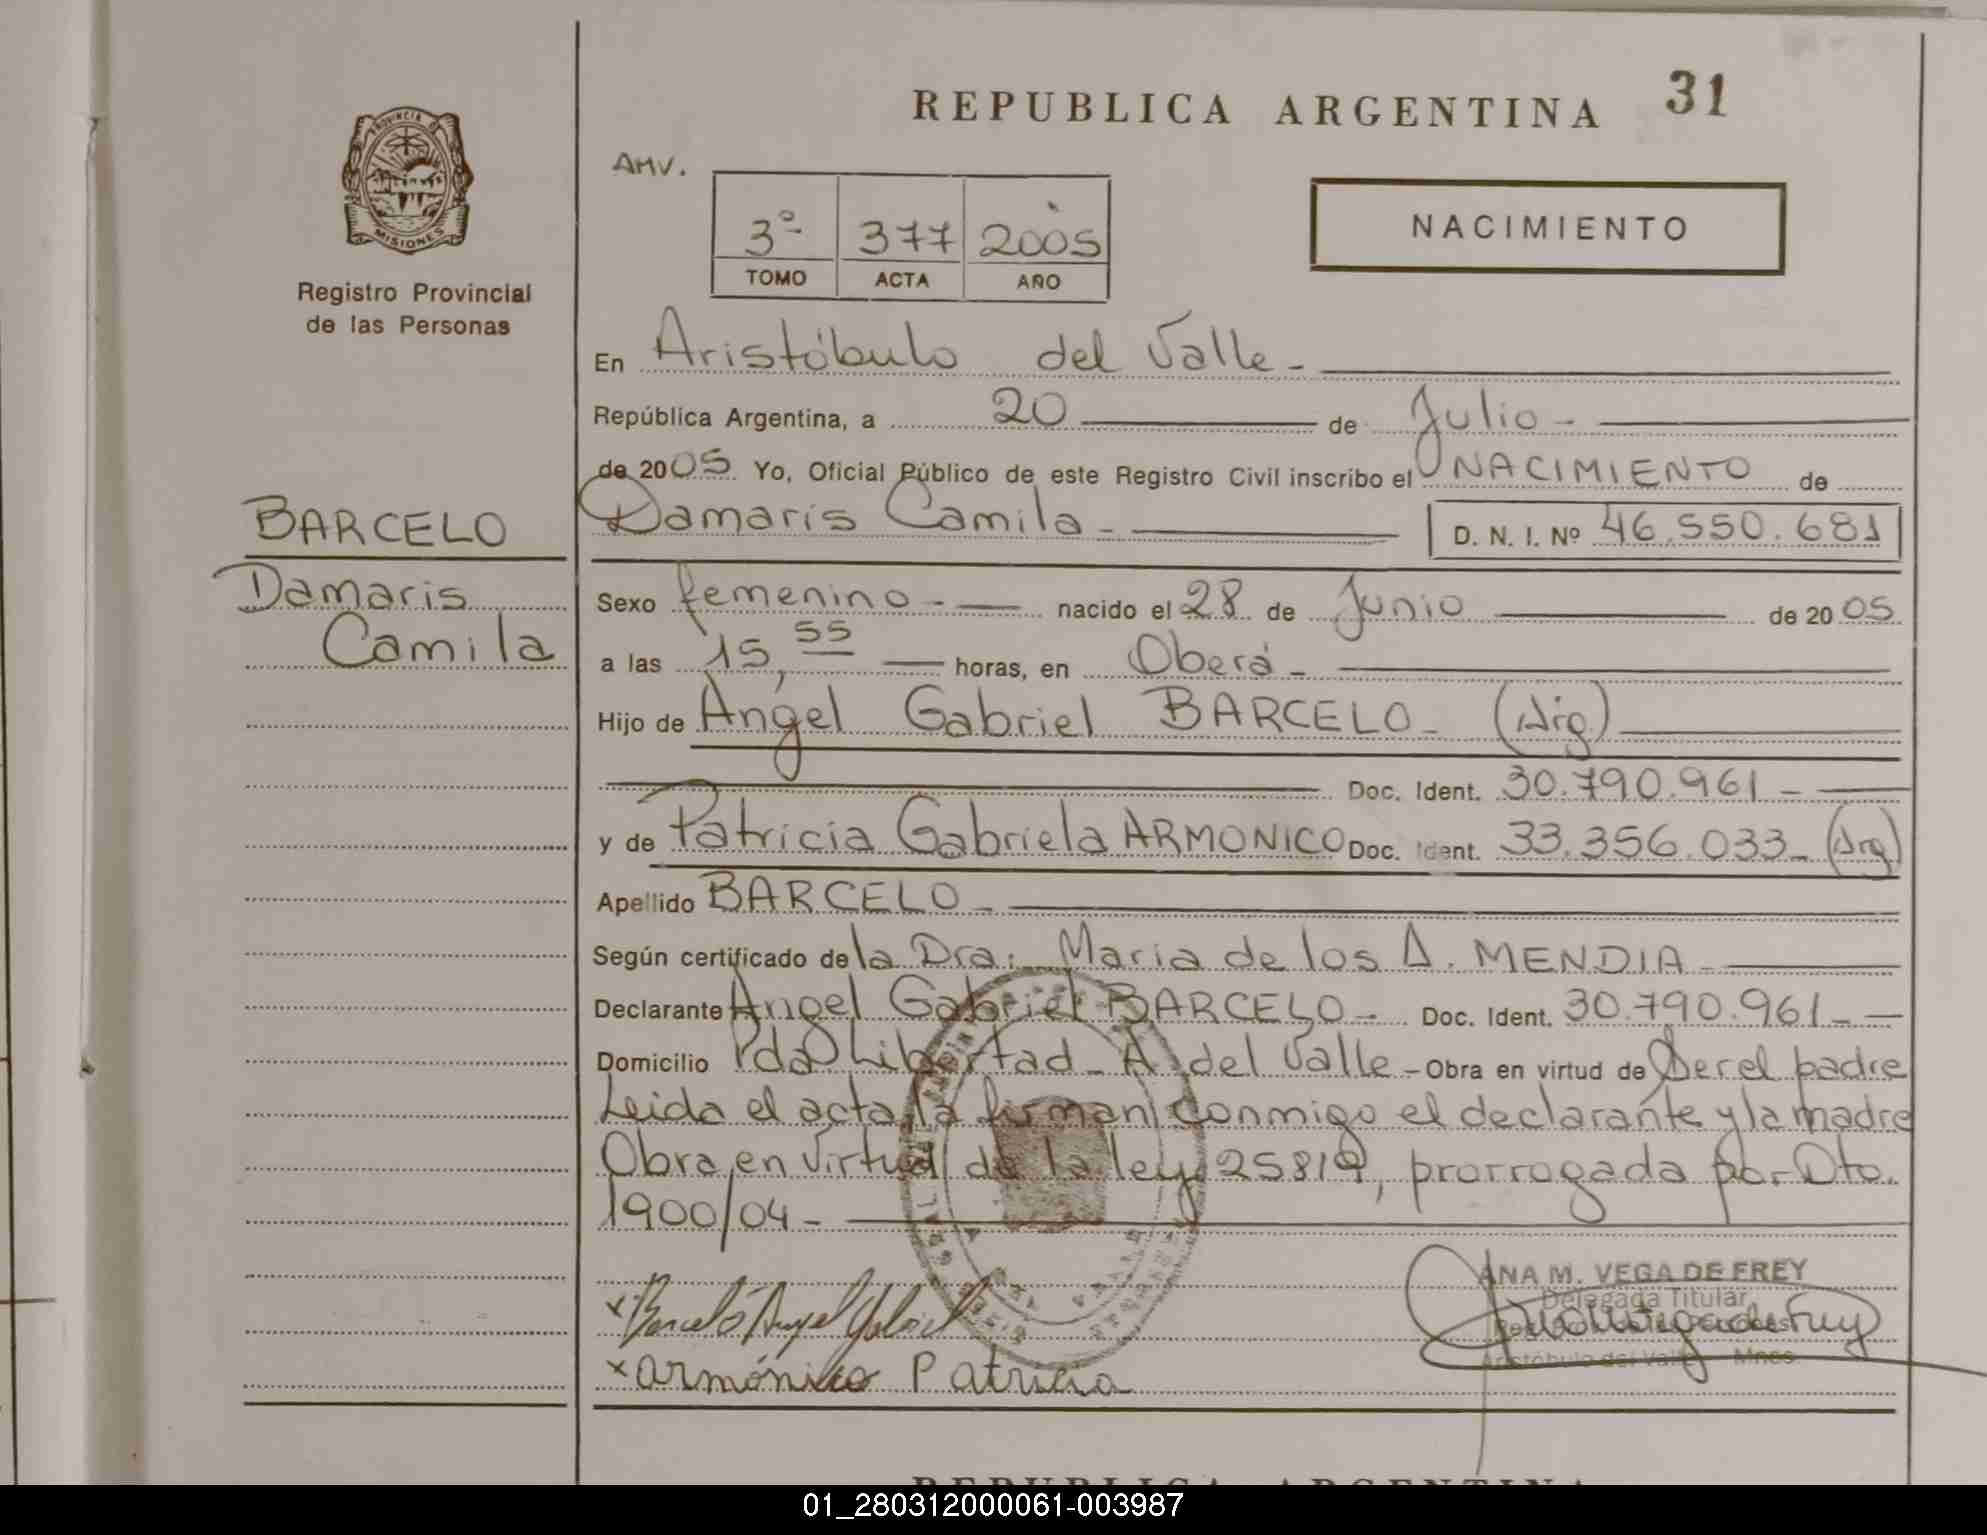 REPUBLICA ARGENTINA 31
PROVINCIA DE
MISIONES
Registro Provincial
de las Personas
AMV.
3º 377 2005
TOMO ACTA AÑO
NACIMIENTO
En Aristóbulo del Valle -
República Argentina, a 20 de Julio -
de 2005 Yo, Oficial Público de este Registro Civil inscribo el NACIMIENTO de
BARCELO
Damaris
Camila
Damaris Camila - D. N. I. Nº 46.550.681
Sexo femenino - nacido el 28 de Junio de 2005
a las 15,55 horas, en Oberá -
Hijo de Angel Gabriel BARCELO - (Arg)
Doc. Ident. 30.790.961 -
y de Patricia Gabriela ARMONICO Doc. Ident. 33.356.033 - (Arg)
Apellido BARCELO -
Según certificado de la Dra: Maria de los A. MENDIA -
Declarante Angel Gabriel BARCELO - Doc. Ident. 30.790.961 -
Domicilio Pda Libertad - A del Valle - Obra en virtud de Ser el padre
Leida el acta la firman conmigo el declarante y la madre
Obra en virtud de la ley 25819, prorrogada por Dto.
1900/04 -
ANA M. VEGA DE FREY
Delegada Titular
x Barceló Angel Gabriel
x armónico Patricia
Aristóbulo del Valle - Mnes
REPUBLICA ARGENTINA
01_280312000061-003987